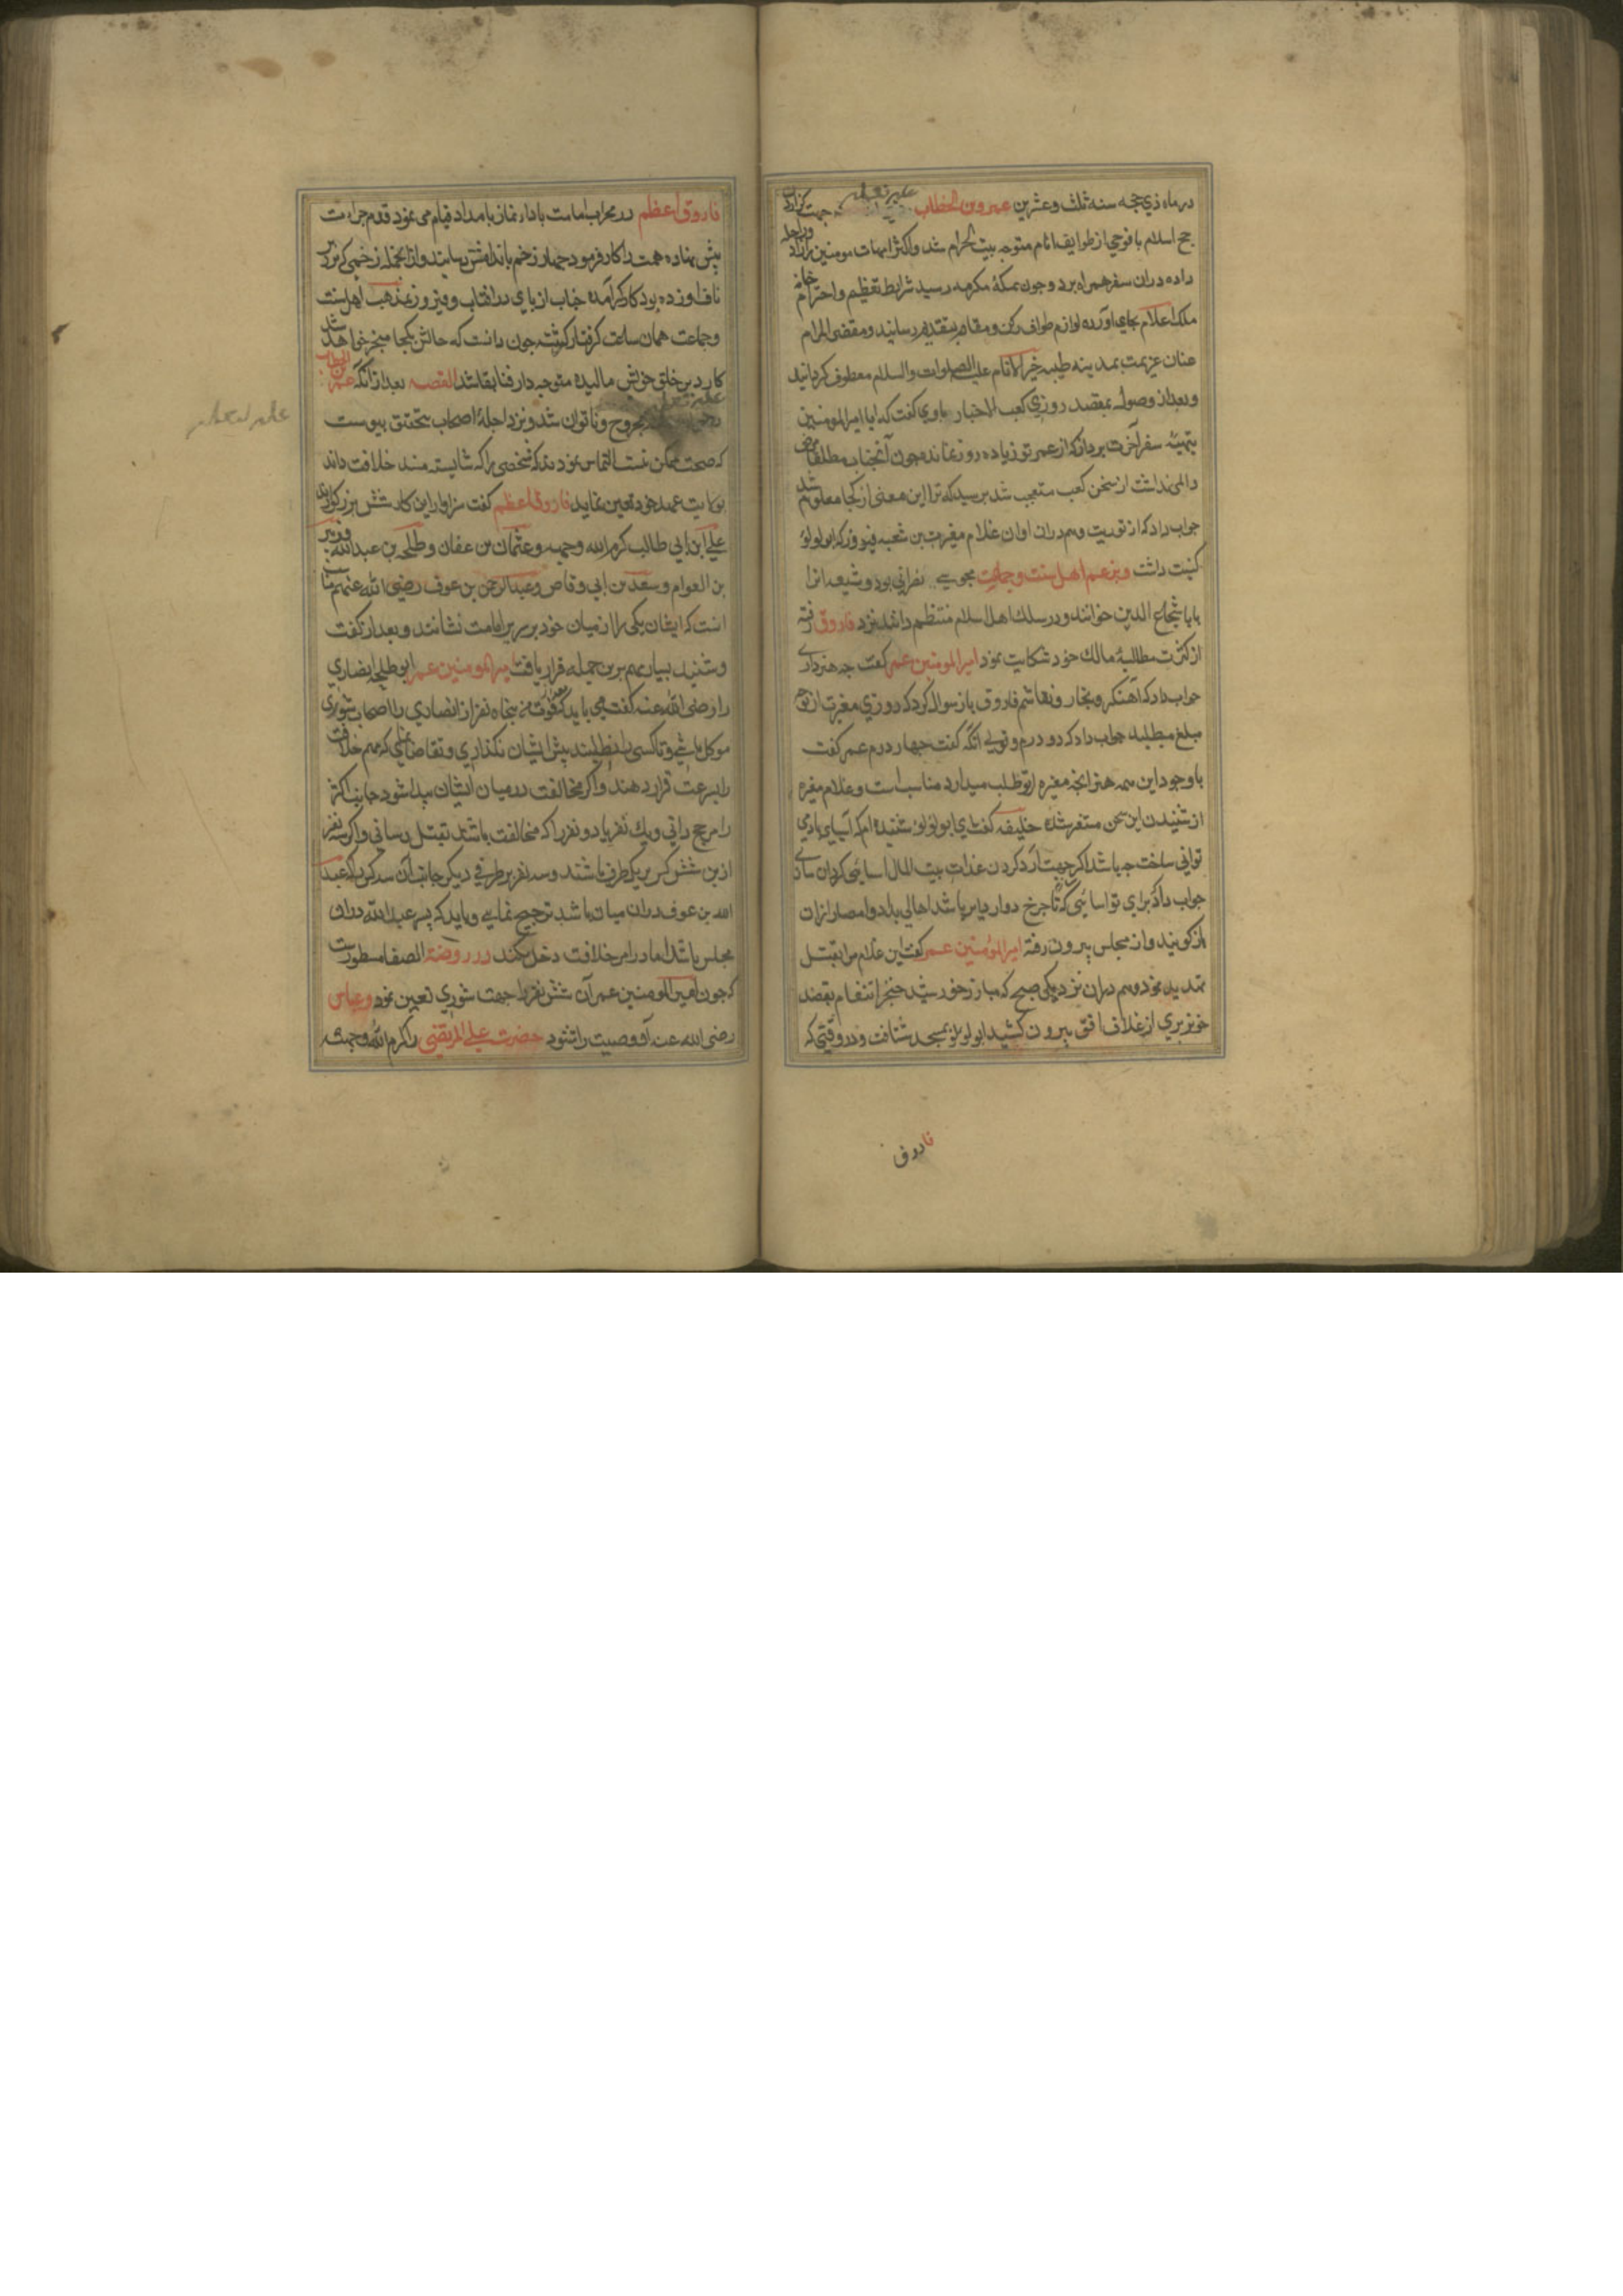 در ماه ذی حجه سنه ثلث و عشرین عمر بن الخطاب جهت گزاردن
حج اسلام با فوجی از طوایف انام متوجه بیت الحرام شد و اکثر امهات مومنین را زاد و راحله
داده دران سفر همراه برد و چون بمکهٔ مکرمه رسید شرایط تعظیم و احترام خانه
ملک اعلام بجای آورده لوازم طواف رکن و مقام بتقدیم رسانید و مقضی المرام
عنان عزیمت بمدینه طیبه خیر الانام علیه الصلوات والسلام معطوف گردانید
و بعد از وصول بمقصد روزی کعب الاخبار باوی گفت که ایا امیر المومنین
بتهیئه سفر آخرت پرداز که از عمر تو زیاده دو روز نمانده چون آنجناب مطلقا مرض
و المی نداشت از سخن کعب متعجب شد پرسید که ترا این معنی از کجا معلوم شد
جواب داد که از توریت و هم دران اوان غلام مغیرت بن شعبه فیروز که ابو لولؤ
کنیت داشت و بزعم اهل سنت و جماعت مجوسی نصرانی بود و شیعه انرا
بابا شجاع الدین خوانند و در سلک اهل اسلام منتظم دانند نزد فاروق رفته
از کثرت مطالبهٔ مالک خود شکایت نمود امیر المومنین عمر گفت چه هنر داری
جواب داد که آهنگر و نجار و نقاشم فاروق باز سوال کرد که روزی مغیرت از تو چه
مبلغ میطلبد جواب داد که دو درم و نویی انگه گفت چهار درم عمر گفت
با وجود این همه هنر انچه مغیره از تو طلب میدارد مناسب است و غلام مغیره
از شنیدن این سخن متغیر شده خلیفه گفت ای ابو لؤلؤ شنیده ام که آسیای بادی
توانی ساخت چه باشد اگر جهت آرد کردن غلات بیت المال اسایی گردان سازی
جواب داد که برای تو اسایی کنم که تا چرخ دوار دایر باشد اهالی بلاد و امصار ازان
باز گویند و از مجلس بیرون رفته امیر المؤمنین عمر گفت این غلام مرا بقتل
تهدید نمود و هم دران نزدیکی صبحی که مبارز خورشید خنجر انتقام بقصد
خونریزی از غلاف افق بیرون کشید ابو لولؤ بمسجد شتافت و در وقتی که
فاروق
فاروق اعظم در محراب امامت بادای نماز بامداد قیام می نمود قدم جرات
پیش نهاده همت را کار فرمود چهار زخم باندامش رسانید و از انجمله زخمی که بزیر
ناف او زده بود کارگر آمده جناب از پای در افتاد و فیروز بمذهب اهل سنت
و جماعت همان ساعت گرفتار گشته چون دانست که حالش بکجا منجر خواهد شد
کارد بر حلق خویش مالیده متوجه دار فنا بقا شد القصه بعد از آنکه عمر بن الخطاب
مجروح و ناتوان شد و نزد اجلهٔ اصحاب بتحقق پیوست
که صحت ممکن نیست التماس نمودند که شخصی را که شایسته مسند خلافت داند
بولایت عهد خود تعین نماید فاروق اعظم گفت سزاوار این کار شش بزرگوارند
علی ابن ابی طالب کرم الله وجهه و عثمان بن عفان و طلحه بن عبد الله و زبیر
بن العوام و سعد بن ابی وقاص و عبد الرحمن بن عوف رضی الله عنهم مناسب
انست که ایشان یکی را از میان خود بر سریر امامت نشانند و بعد از گفت
و شنید بسیار مهم برین جمله قرار یافت امیر المومنین عمر ابو طلحه انصاری
را رضی الله عنه گفت می باید که تو با پنجاه نفر از انصاری را اصحاب شوری
موکل باشی و تا کسی را نطلبند پیش ایشان نگذاری و تقاضا نمایی که مهم خلافت
را بسرعت قرار دهند و اگر مخالفت در میان ایشان پیدا شود جانب اکثر
را مرجح دانی و یک نفر یا دو نفر را که مخالفت باشد بقتل رسانی و اگر سه نفر
ازین شش کس بر یک طرف باشند و سه نفر بر طرفی دیگر جانب آن سه کس را که عبد
الله بن عوف دران میان باشد ترجیح نمایی و باید که پسرم عبد الله دران
مجلس باشد اما در امر خلافت دخل نکند در روضة الصفا مسطورست
که چون امیر المومنین عمر آن شش نفر را جهت شوری تعین نمود و عباس
رضی الله عنه آن وصیت را شنود حضرت علی المرتضی را کرم الله وجهه